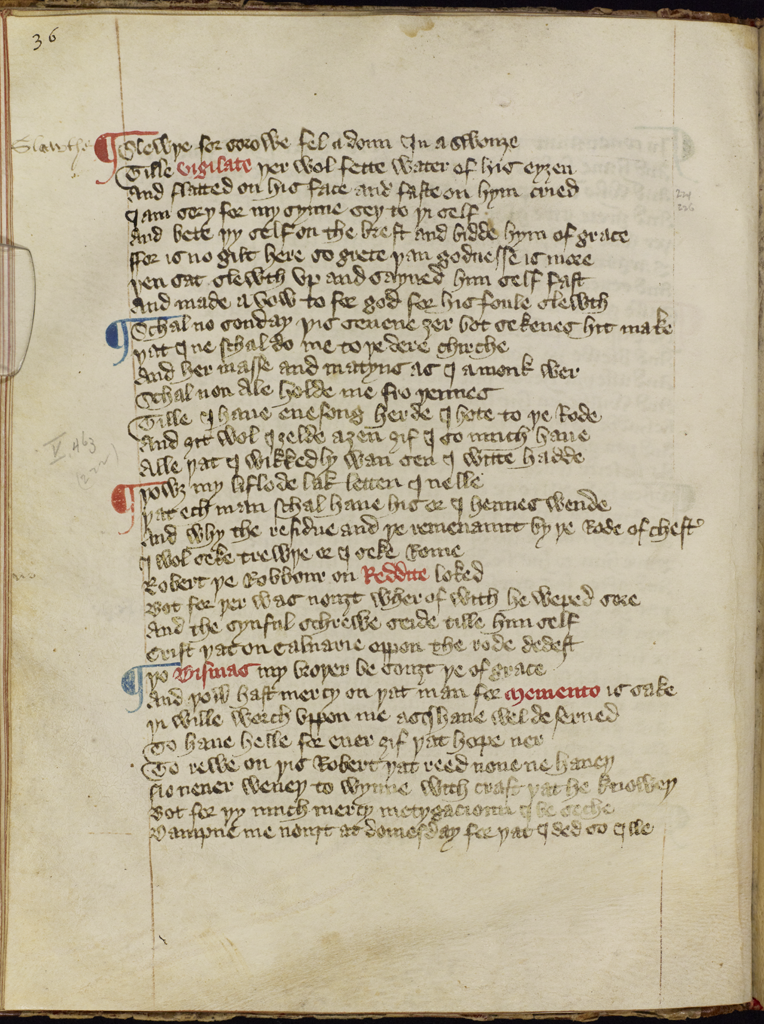 36
Slewthe
Slewþe for sorowe fel a doun In a swonze
Tille vigilate þer wol fette water of his eyzen
And flatted on his face and faste on hym cried
I am sory for my synne sey to þi self
And bete þy self on the brest and bidde hym of grace
ffor is no gilt here so grete þan godnesse is more
þen sat slewth vp and sayned him self fast
And made a vow to for god for his foule slewth
Schal no sonday þis seuene zer bot sekenes hit make
þat I ne schal do me to þe dere chirche
And her masse and matyns as I a monk wer
Schal non Ale holde me fro þennes
Tille I haue euesong herde I hote to þe Rode
And zit wol I zelde azen zif I so much haue
Alle þat I wikkedly wan sen I witte hadde
þowz my liflode lak letten I nelle
þat ech man schal haue his er I hennes wende
And why the residue and þe remenaunt by þe Rode of chestr
I wol seke trewþe er I seke Rome
Robert þe Robbour on Reddite loked
Bot for þer was nouzt wher of with he weped sore
And the synful schrewe seide tille him self
Crist þat on Caluarie oppon the rode dedest
þo Dismas my broþer be souzt þe of grace
And þow hast mercy on þat man for Memento is sake
þi wille werch vppon me as I haue wel deserued
To haue helle for euer zif þat hope ner
To rewe on þis Robert þat reed none ne haueþ
No neuer weneþ to wynne with craft þat he knoweþ
Bot for þy much mercy metygacioun I be seche
Dampne me nouzt at domesday for þat I ded so ille
V 463
(222)
224
226